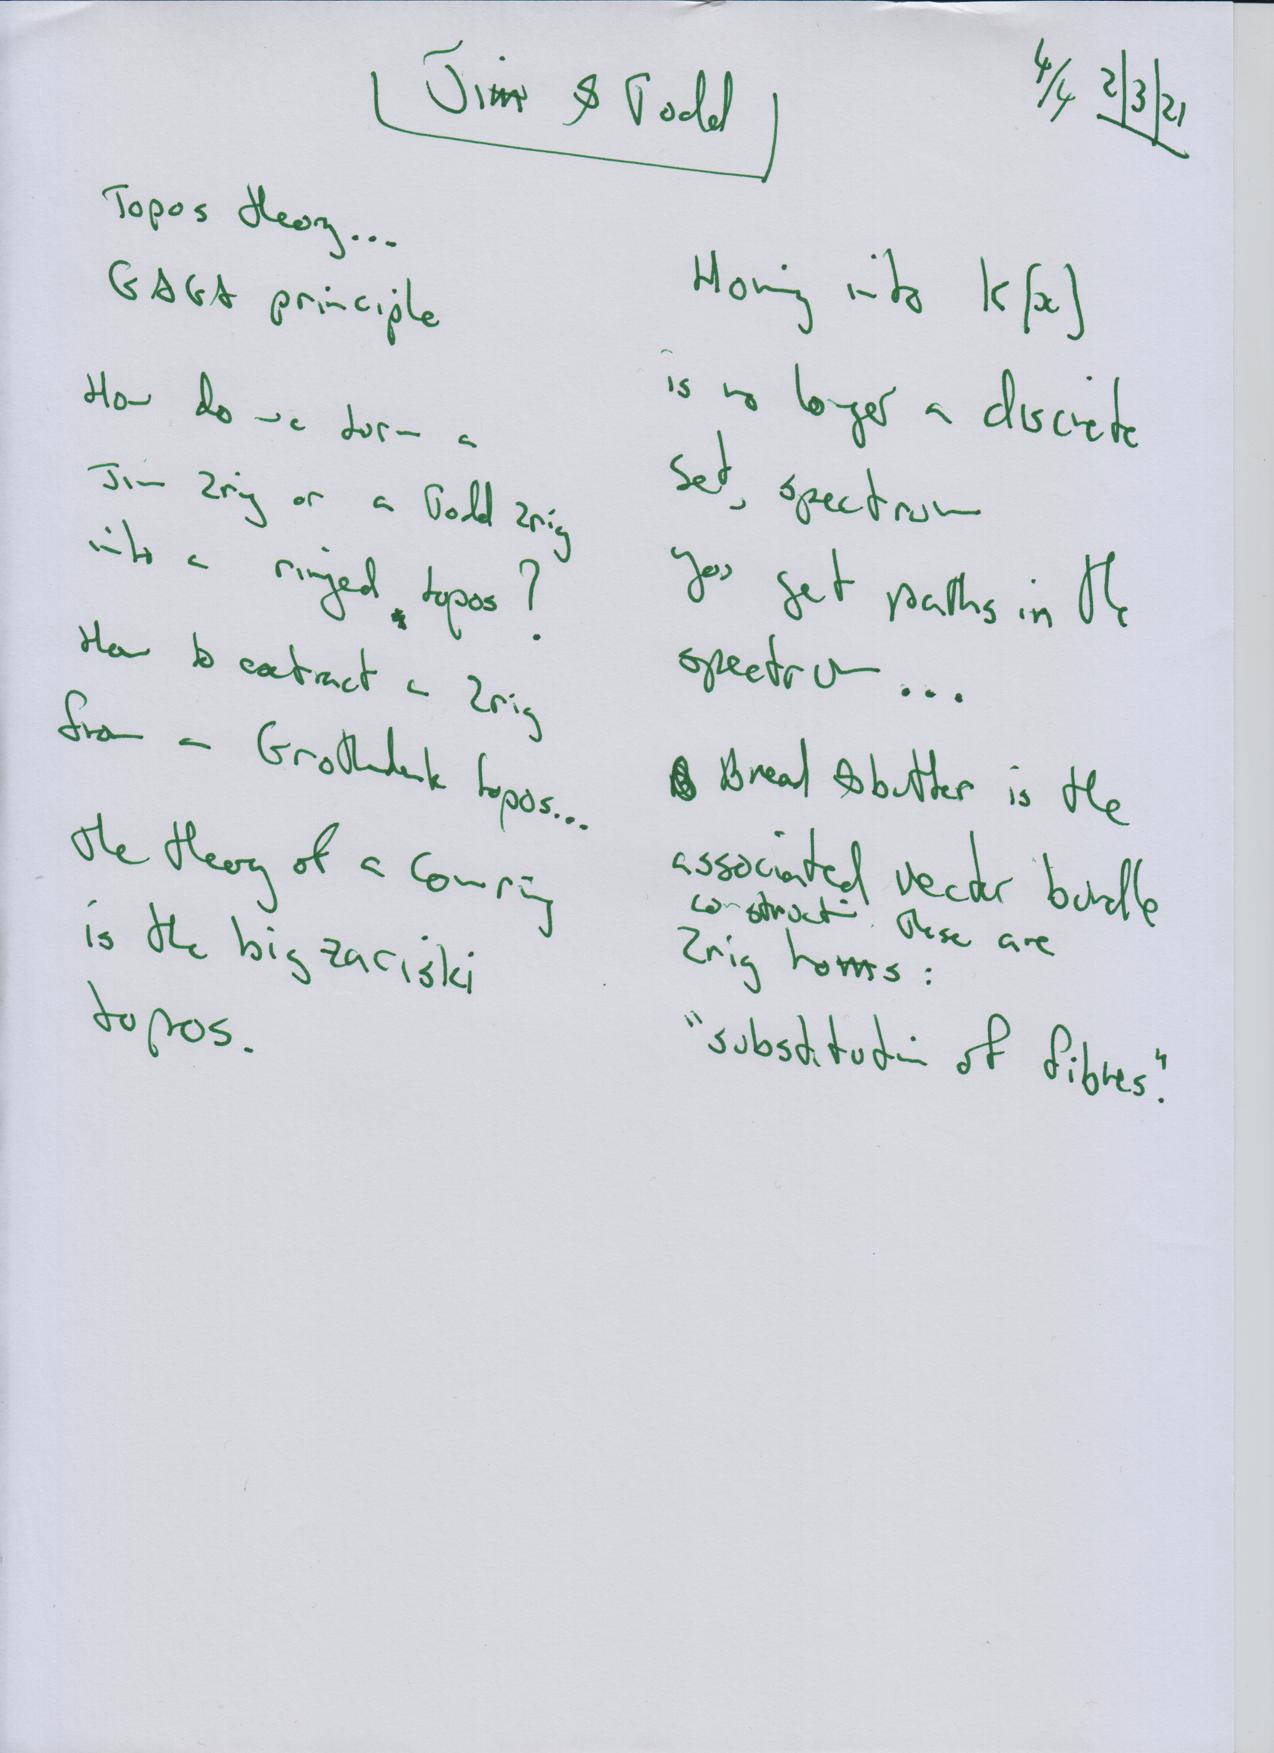 Jim & Todd
4/4 2|3|21
Topos theory...
GAGA principle
How do we turn a
Jim 2rig or a Todd 2rig
into a ringed topos?
How to extract a 2rig
from a Grothendieck topos...
the theory of a comring
is the big zariski
topos.
Homing into k[x]
is no longer a discrete
set, spectrum
you get paths in the
spectrum...
Bread & butter is the
associated vector bundle
construction. These are
2rig homs:
"substitution of fibres".